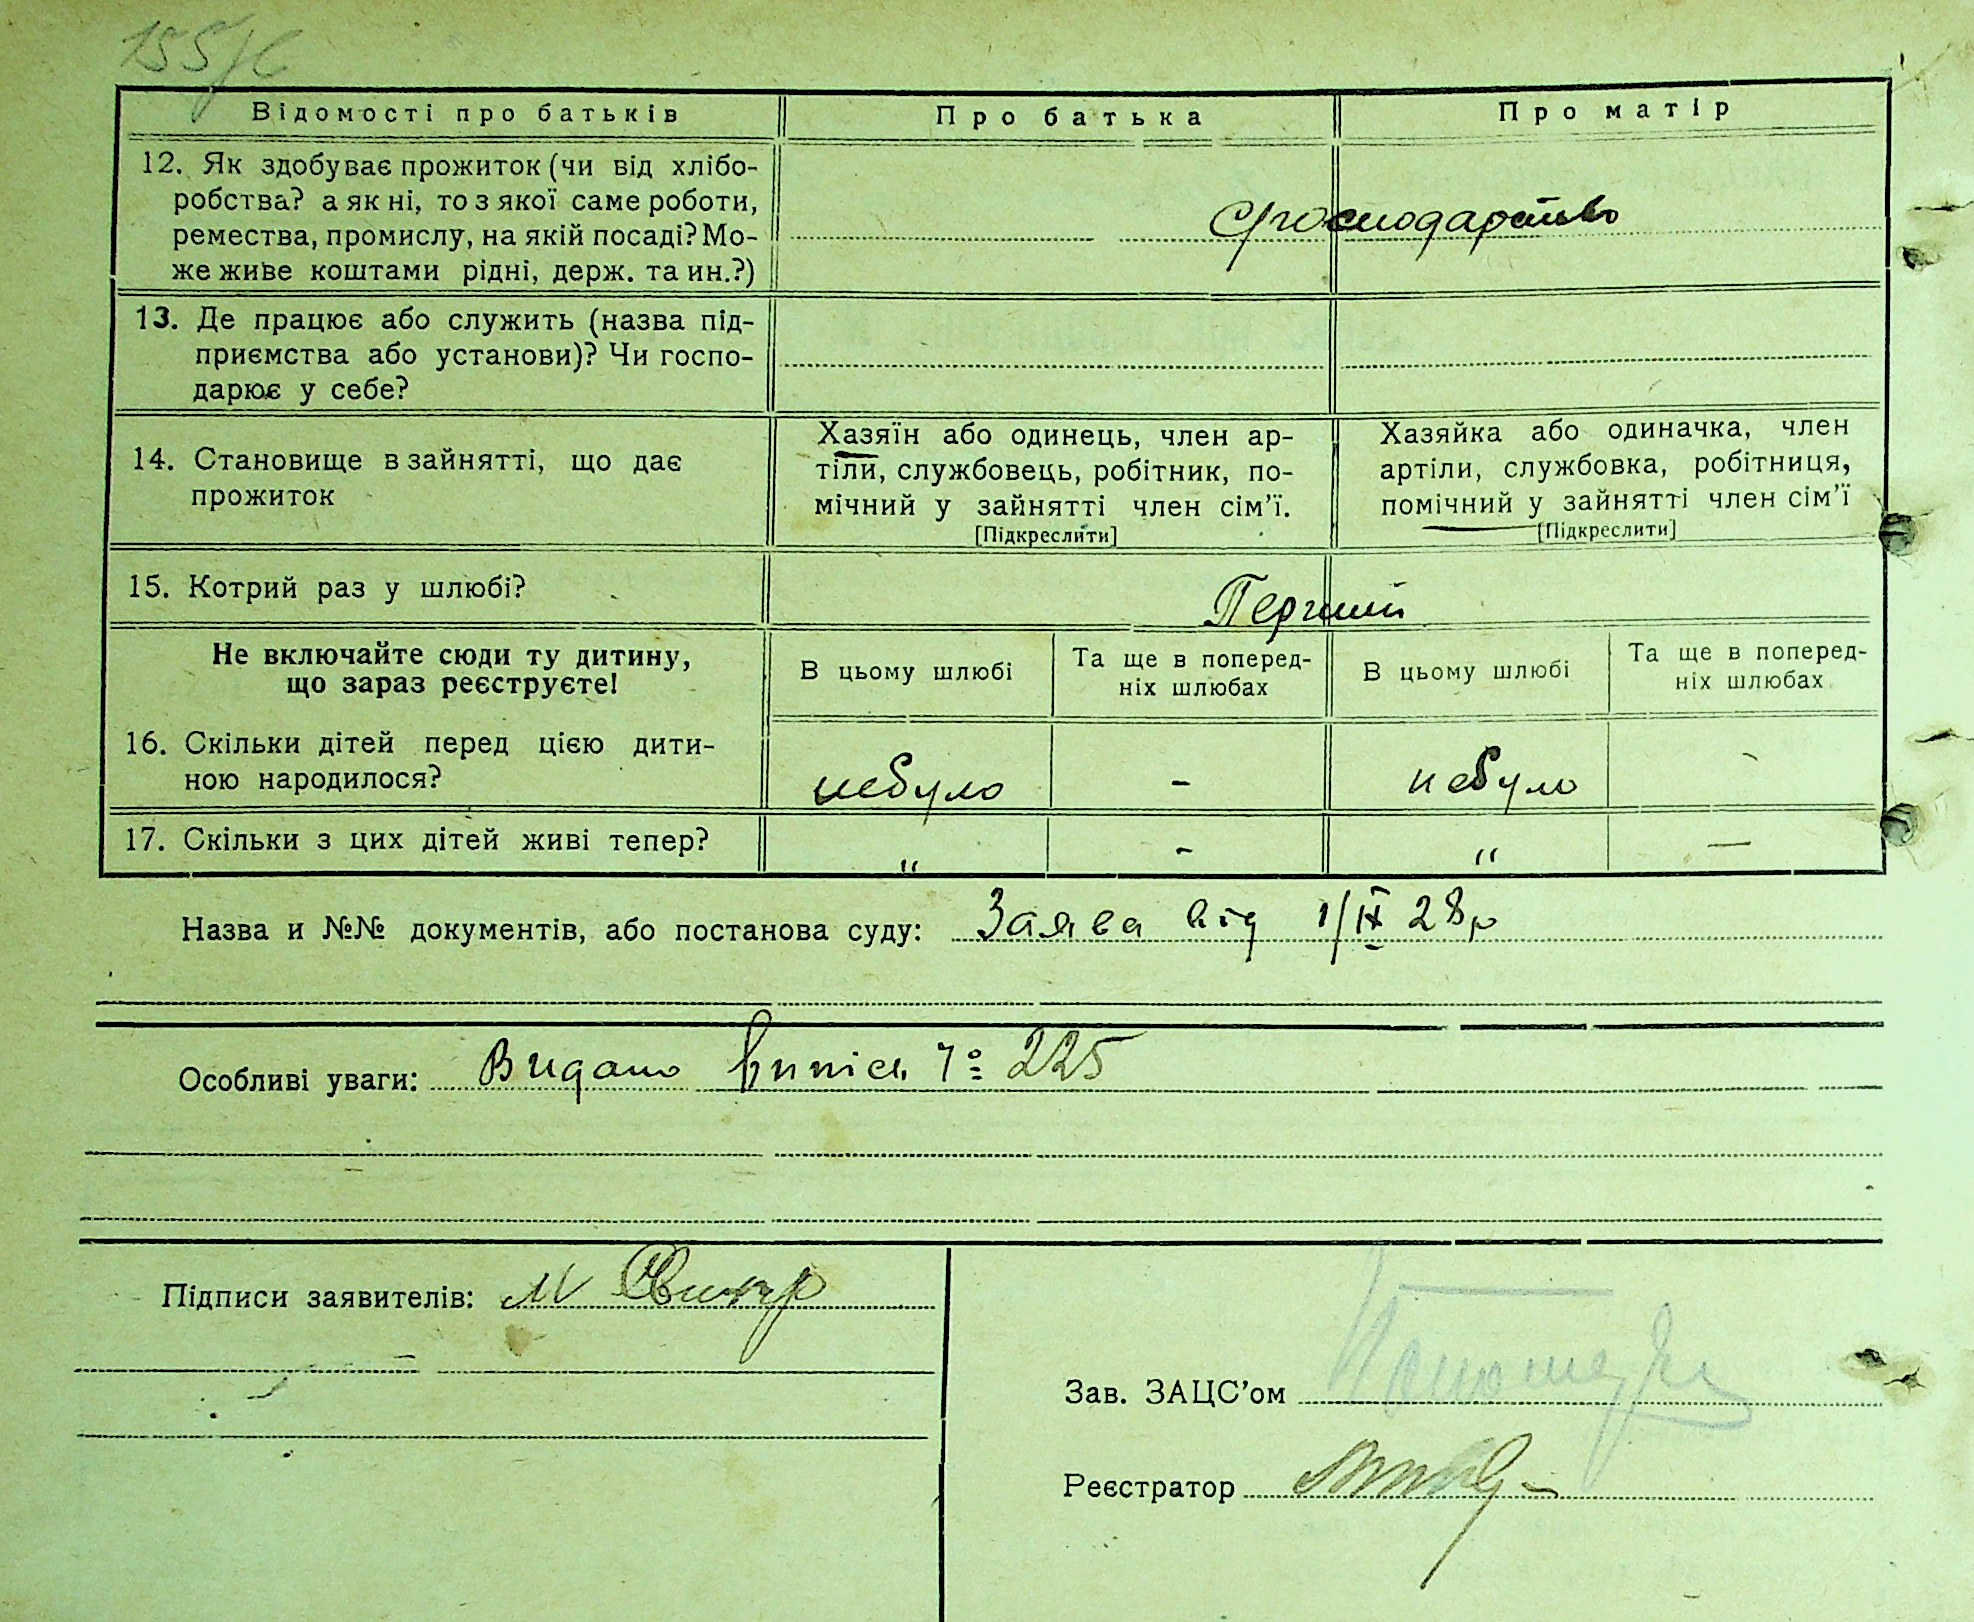 Відомості про батьків
Про батька
Про матір
12. Як здобуває прожиток (чи від хлібо-
робства? а як ні, то з якої саме роботи,
ремества, промислу, на якій посаді? Мо-
же живе коштами рідні, держ. та ин.?)
с/господарство
13. Де працює або служить (назва під-
приємства або установи)? Чи госпо-
дарює у себе?
14. Становище в зайнятті, що дає
прожиток
Хазяїн або одинець, член ар-
тіли, службовець, робітник, по-
мічний у зайнятті член сім'ї.
[Підкреслити]
Хазяйка або одиначка, член
артіли, службовка, робітниця,
помічний у зайнятті член сім'ї
[Підкреслити]
15. Котрий раз у шлюбі?
Перший
Не включайте сюди ту дитину,
що зараз реєструєте!
В цьому шлюбі
Та ще в поперед-
ніх шлюбах
В цьому шлюбі
Та ще в поперед-
ніх шлюбах
16. Скільки дітей перед цією дити-
ною народилося?
небуло - небуло -
17. Скільки з цих дітей живі тепер?
" - " —
Назва и №№ документів, або постанова суду: Заява від 1/IX 28р
Особливі уваги: Видано випись № 225
Підписи заявителів: М
Зав. ЗАЦС'ом
Реєстратор